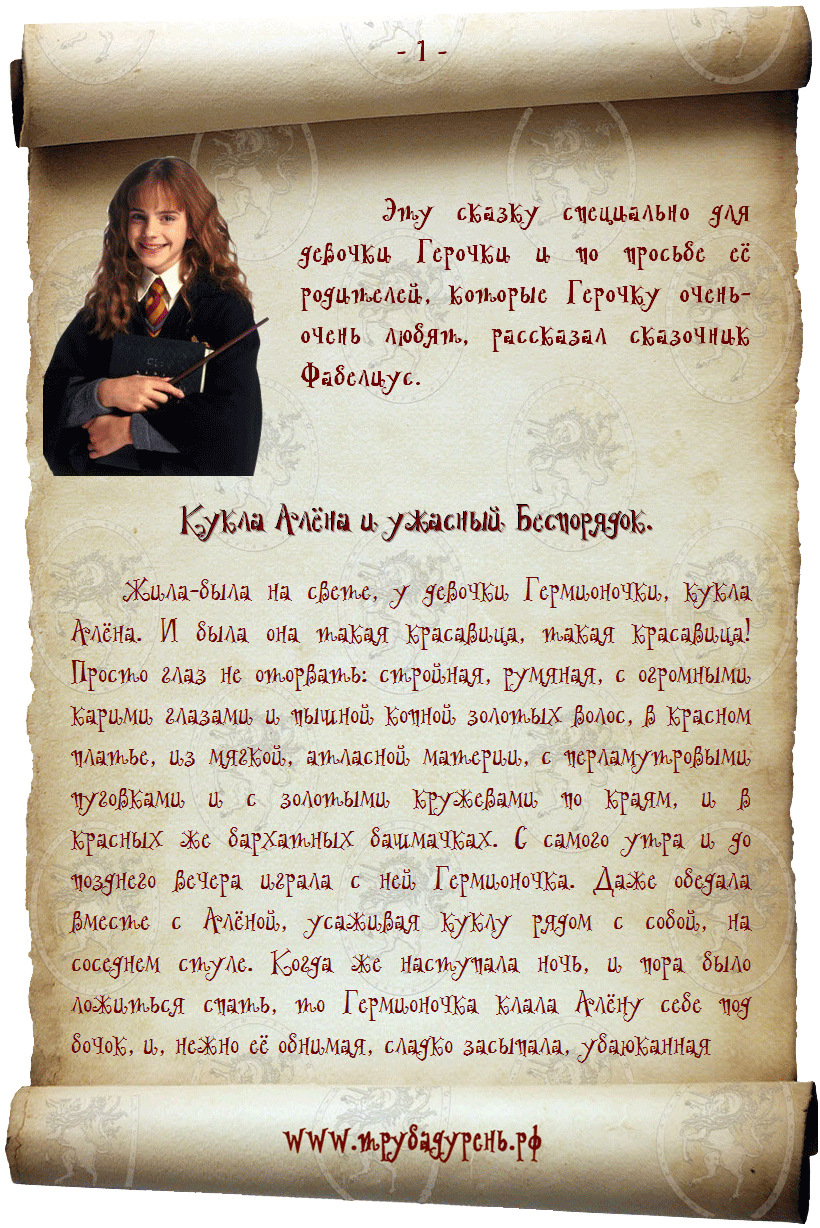 - 1 -
Эту сказку специально для
девочки Герочки и по просьбе её
родителей, которые Герочку очень-
очень любят, рассказал сказочник
Фабелиус.
Кукла Алёна и ужасный Беспорядок.
Жила-была на свете, у девочки Гермионочки, кукла
Алёна. И была она такая красавица, такая красавица!
Просто глаз не оторвать: стройная, румяная, с огромными
карими глазами и пышной копной золотых волос, в красном
платье, из мягкой, атласной материи, с перламутровыми
пуговками и с золотыми кружевами по краям, и в
красных же бархатных башмачках. С самого утра и до
позднего вечера играла с ней Гермионочка. Даже обедала
вместе с Алёной, усаживая куклу рядом с собой, на
соседнем стуле. Когда же наступала ночь, и пора было
ложиться спать, то Гермионочка клала Алёну себе под
бочок, и, нежно её обнимая, сладко засыпала, убаюканная
www.трубадурень.рф